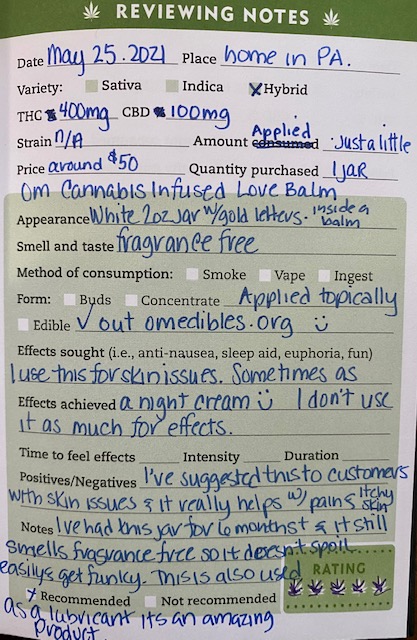 REVIEWING NOTES
Date May 25. 2021 Place home in PA.
Variety: Sativa Indica Hybrid
THC 400mg CBD 100mg
Strain n/A Amount consumed Applied just a little
Price around $50 Quantity purchased 1 jar
Om Cannabis Infused Love Balm
Appearance White 2oz jar w/gold letters. inside a balm
Smell and taste fragrance free
Method of consumption: Smoke Vape Ingest
Form: Buds Concentrate Applied topically
Edible ✓ out omedibles.org
Effects sought (i.e., anti-nausea, sleep aid, euphoria, fun)
I use this for skin issues. Sometimes as
Effects achieved a night cream I don't use
it as much for effects.
Time to feel effects Intensity Duration
Positives/Negatives I've suggested this to customers
with skin issues & it really helps w/ pain & itchy skin
Notes I've had this jar for 6 months + & it still
smells fragrance free so it doesn't spoil
easily & get funky. This is also used
RATING
Recommended Not recommended
as a lubricant its an amazing
product.